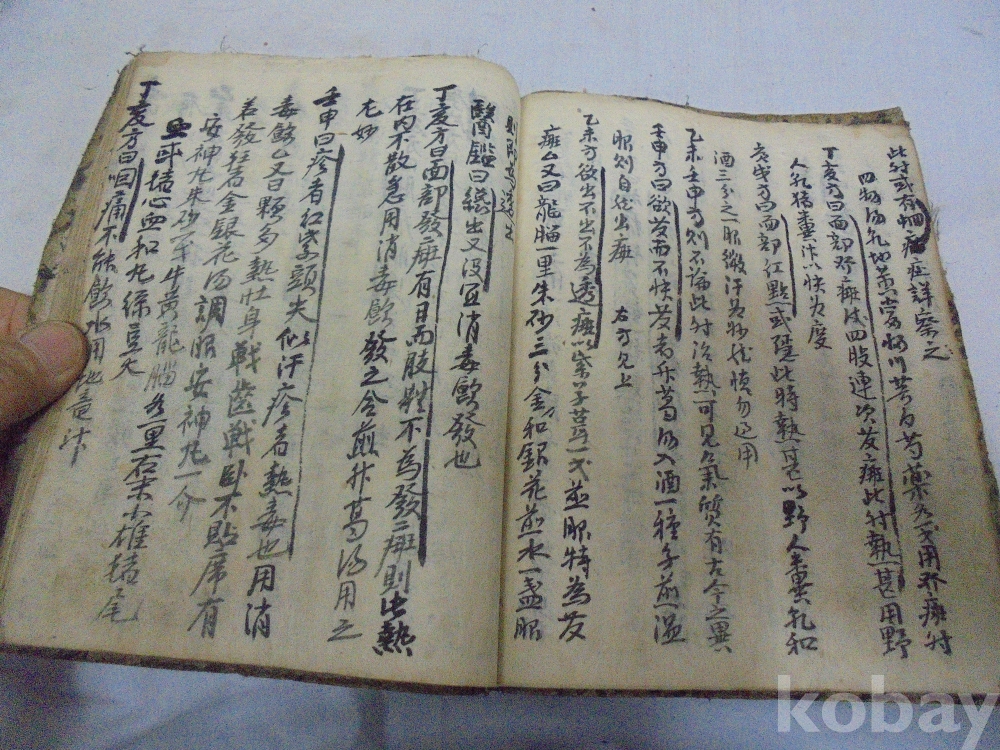 此時或有咽痛症詳察之
四物湯乳地黃當歸川芎白芍藥各戈用發癍時
丁亥方曰面部發癍後四肢連次發癍此時熱甚用野
人乳猪糞汁以快為度
方曰面部紅點或隱此時熱甚以野人糞乳和
酒三分之一服微汗為妙然慎勿過用
乙未壬申方則不論此時治熱可見氣質有古今之異
壬申方曰欲發而不快發者升葛湯入酒一種子煎溫
乙未方欲出不出不為透癍以紫草茸一戈煎服特為發
服則自然出癍 右方見上
癍又曰龍腦一里朱砂三分金和銀花煎水一盞服
則
醫鑑曰纔出又沒宜消毒飲發也
丁亥方曰面部發癍有日而肢體不為發癍則出熱
在內不散急用消毒飲發之今煎升葛湯用之
尤妙
壬申曰疹者紅字頭尖似汗疹者熱毒也用消
毒飲又曰顆多熱壯身戰齒戰臥不貼席有
若發狂者金銀花湯調服安神丸一介
安神丸朱砂一戈牛黃龍腦各一里右末小雄猪尾
血或猪心血和丸綠豆大
丁亥方曰咽痛不能飲水用地竜汁
kobay